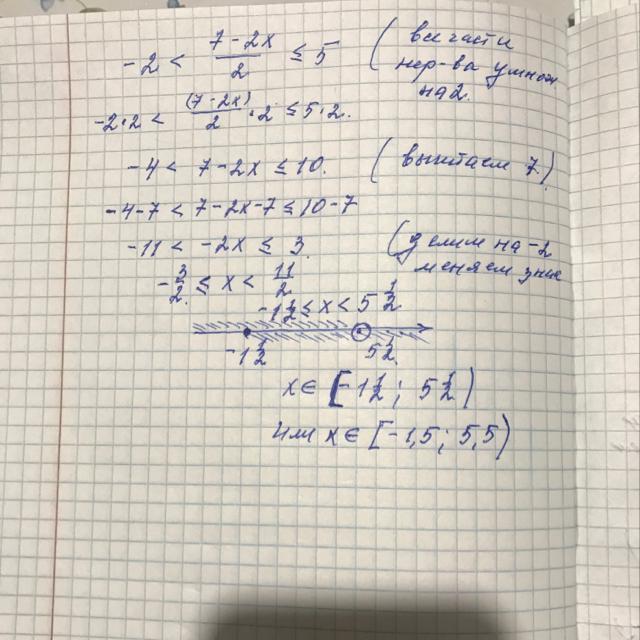 -2 < (7-2x)/2 ≤ 5 (все части
нер-ва умнож
на 2.
-2·2 < (7-2x)/2 ·2 ≤ 5·2.
-4 < 7-2x ≤ 10. (вычитаем 7.)
-4-7 < 7-2x-7 ≤ 10-7
-11 < -2x ≤ 3. (делим на -2
меняем знак
-3/2 ≤ x < 11/2
-1 1/2 ≤ x < 5 1/2
-1 1/2 5 1/2
x ∈ [-1 1/2; 5 1/2)
или x ∈ [-1,5; 5,5)